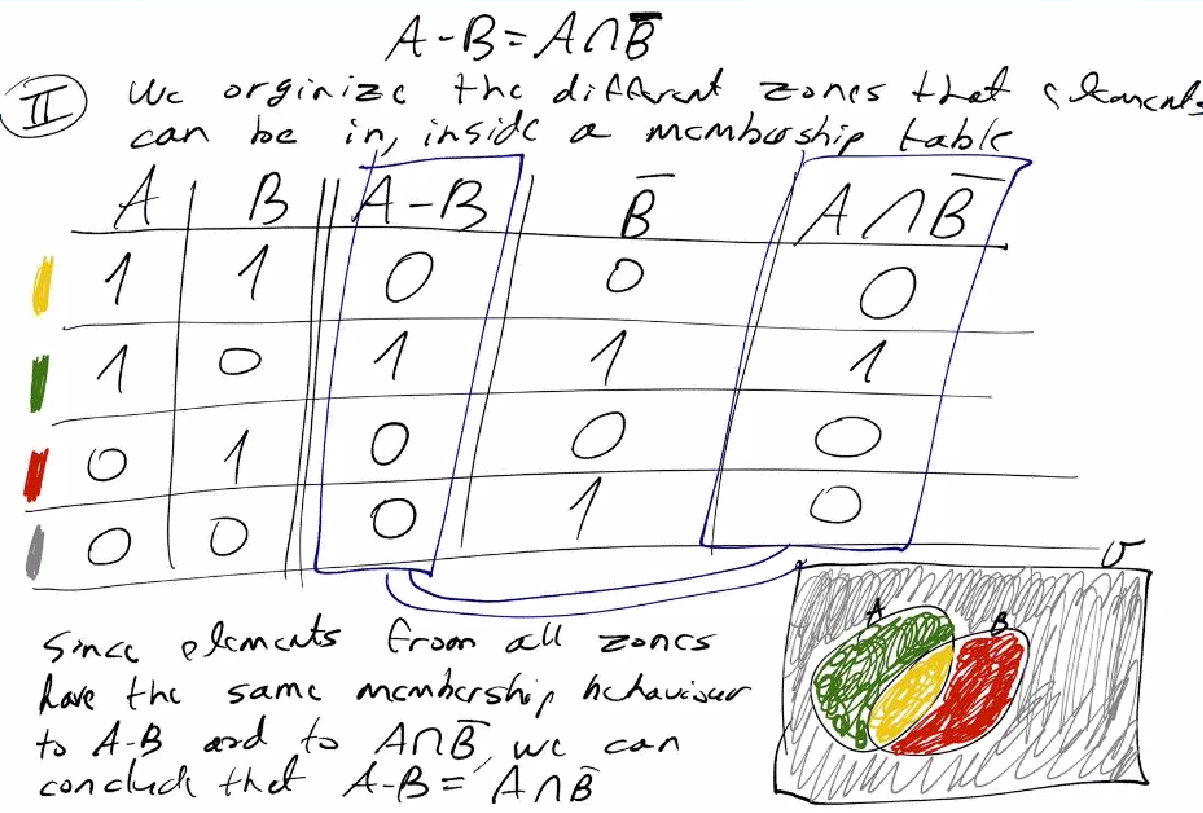 A-B=A∩B̅
II We orginize the different zones that elements
can be in, inside a membership table
A B A-B B̅ A∩B̅
1 1 0 0 0
1 0 1 1 1
0 1 0 0 0
0 0 0 1 0
U
A B
Since elements from all zones
have the same membership behaviour
to A-B and to A∩B̅, we can
conclude that A-B = A∩B̅